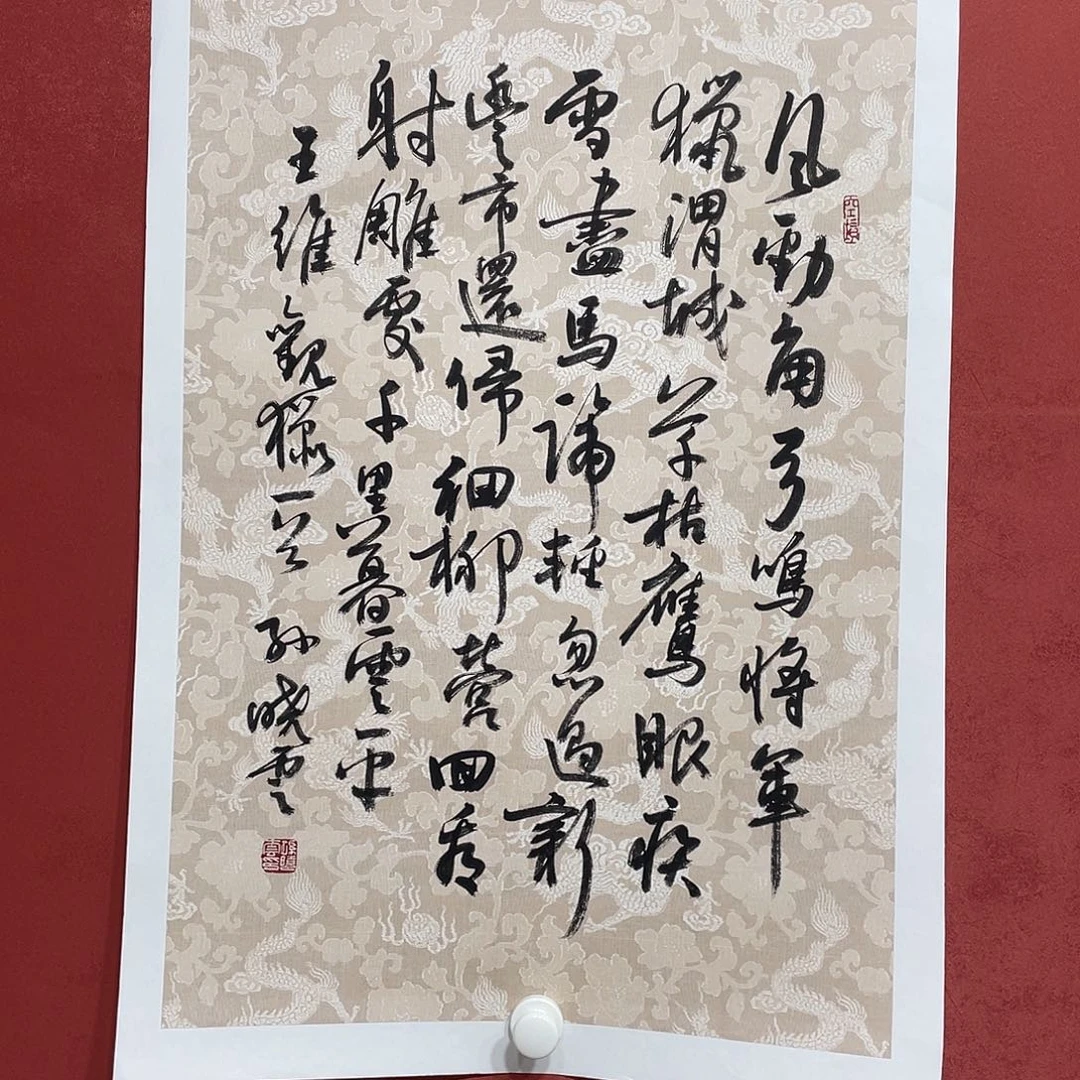 風勁角弓鳴將軍
獵渭城草枯鷹眼疾
雪盡馬蹄輕忽過新
豐市還歸細柳營回看
射雕處千里暮雲平
王維觀獵一首 孫曉雲